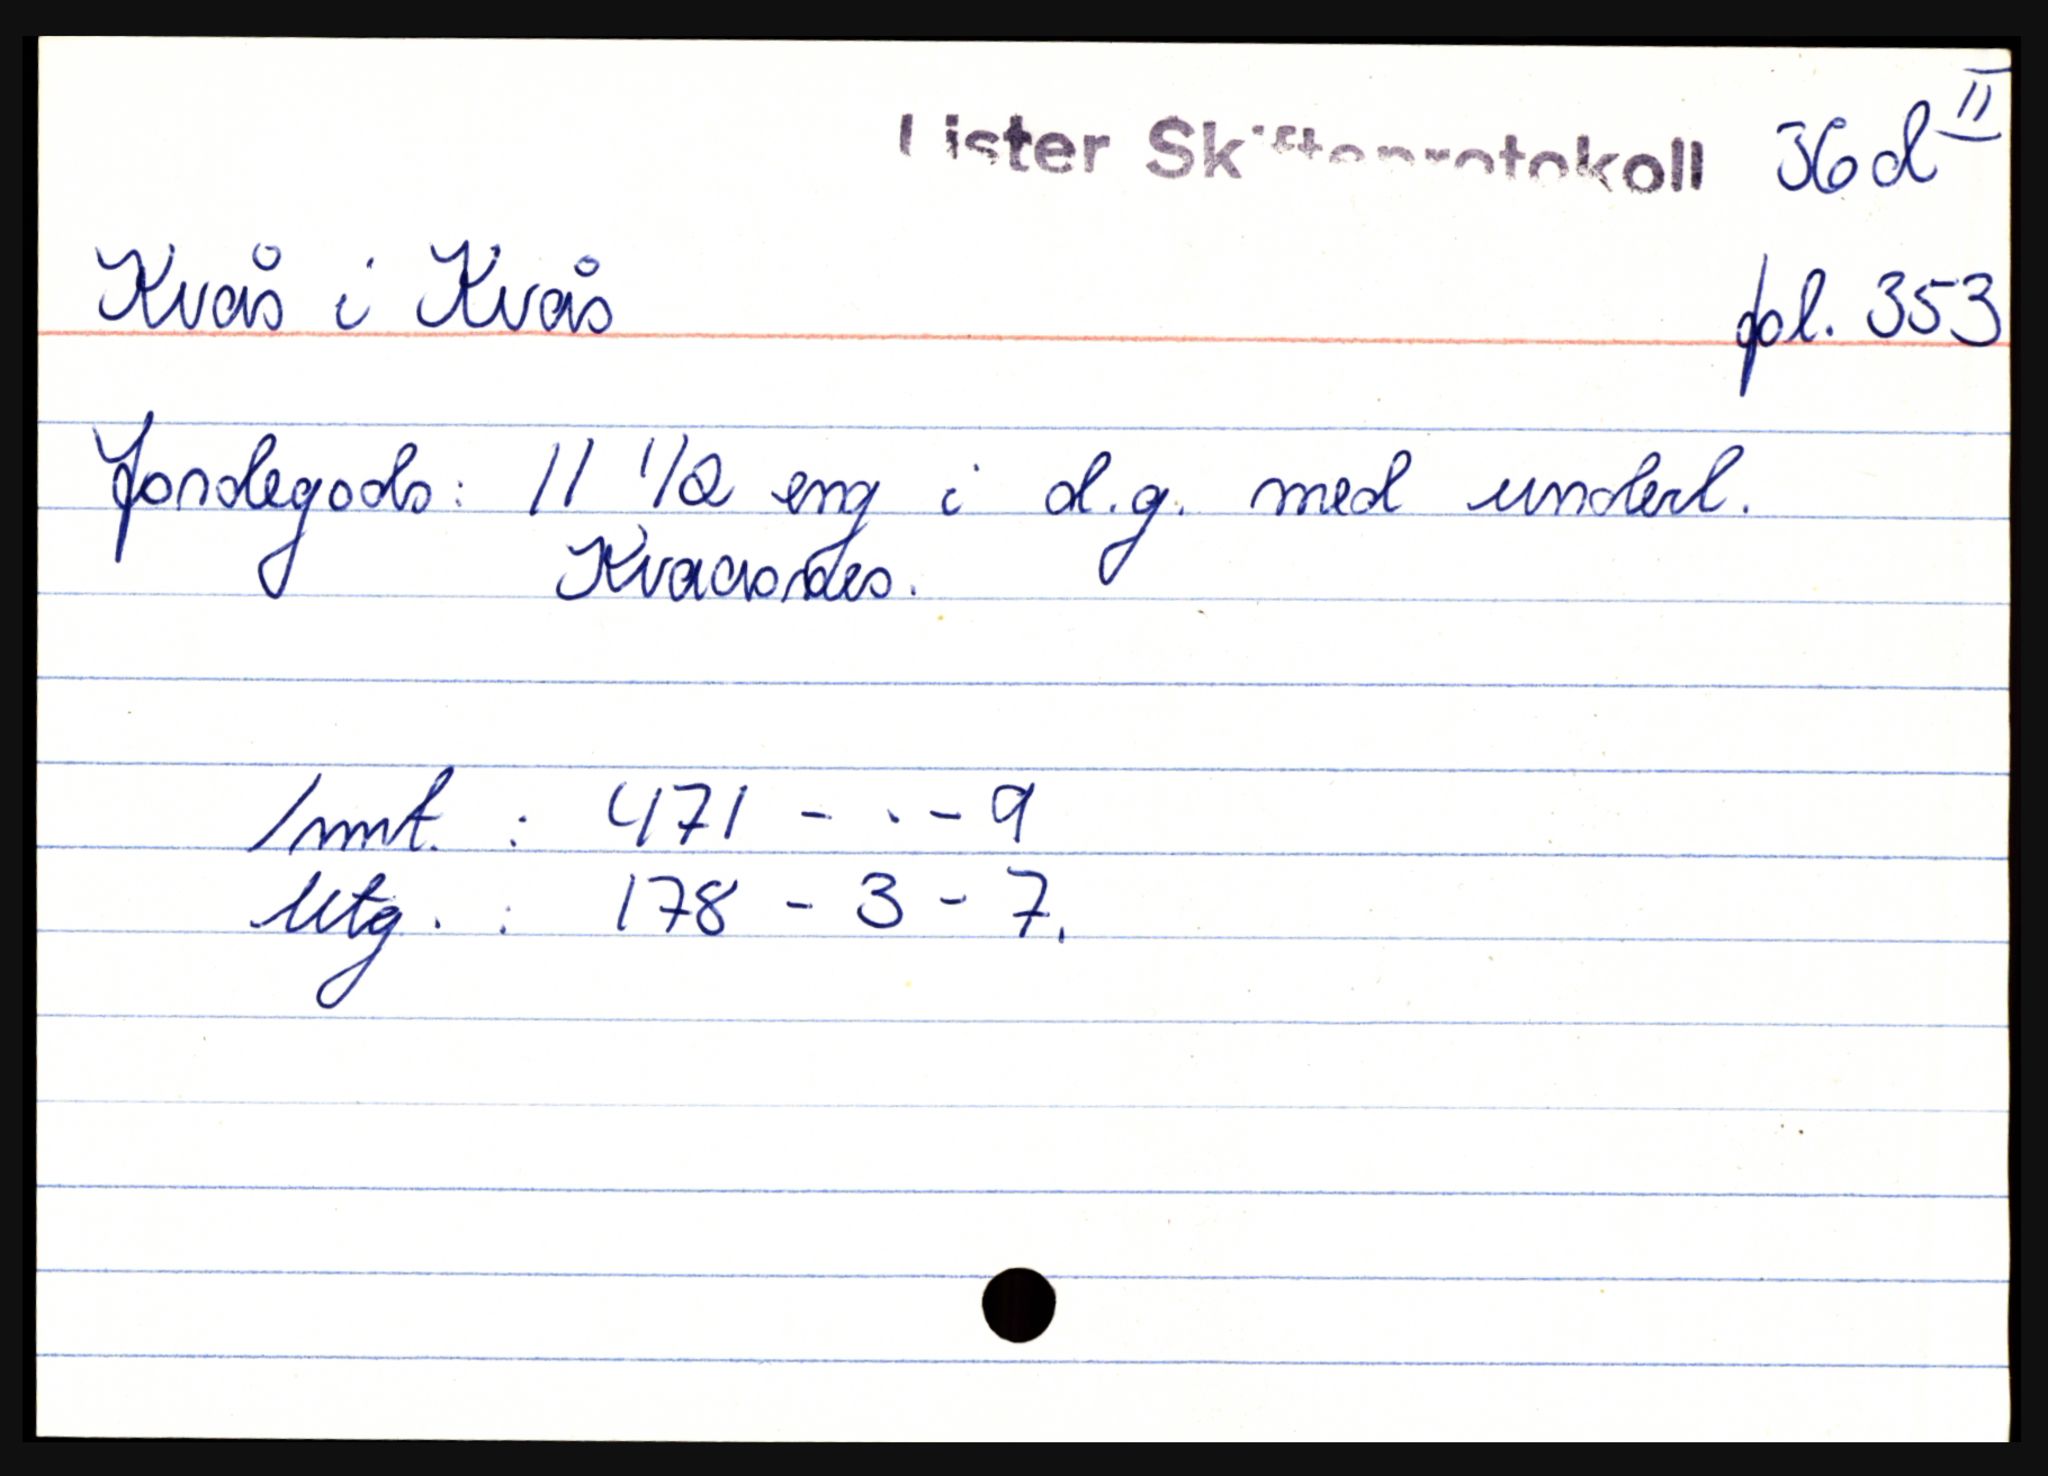 Lister Skifteprotokoll 36 d II
Kvås i Kvås
fol. 353
Jordegods: 11 1/2 eng i d.g. med underl.
Kvaasnes.
Innt. : 471 - . - 9
Utg. : 178 - 3 - 7.